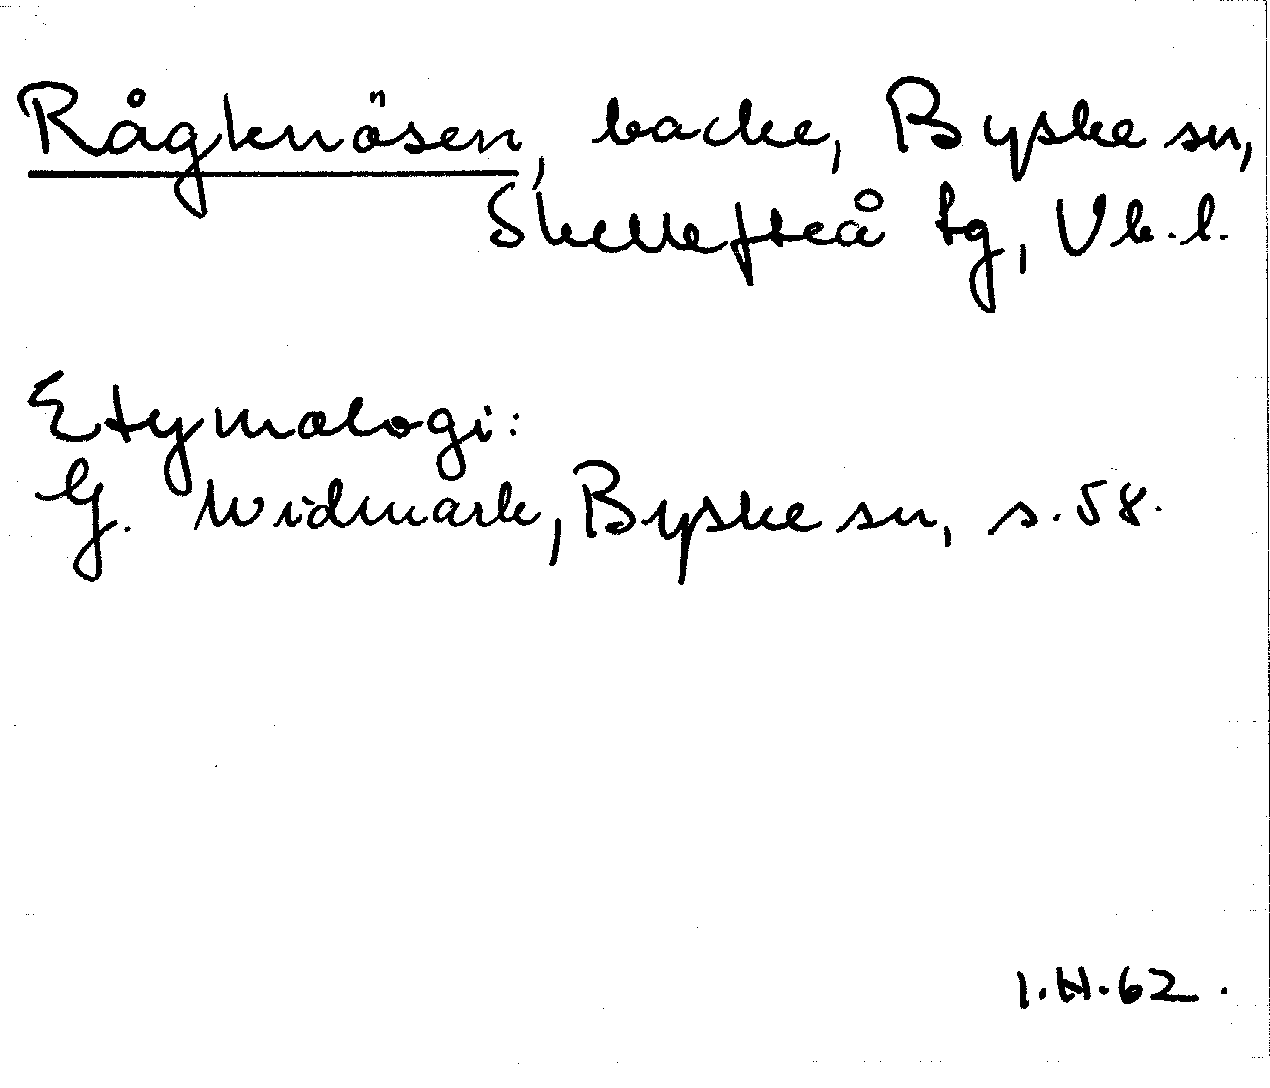 Rågknösen, backe, Byske sn,
Skellefteå tg, Vb.l.
Etymologi:
G. Widmark, Byske sn, s. 58.